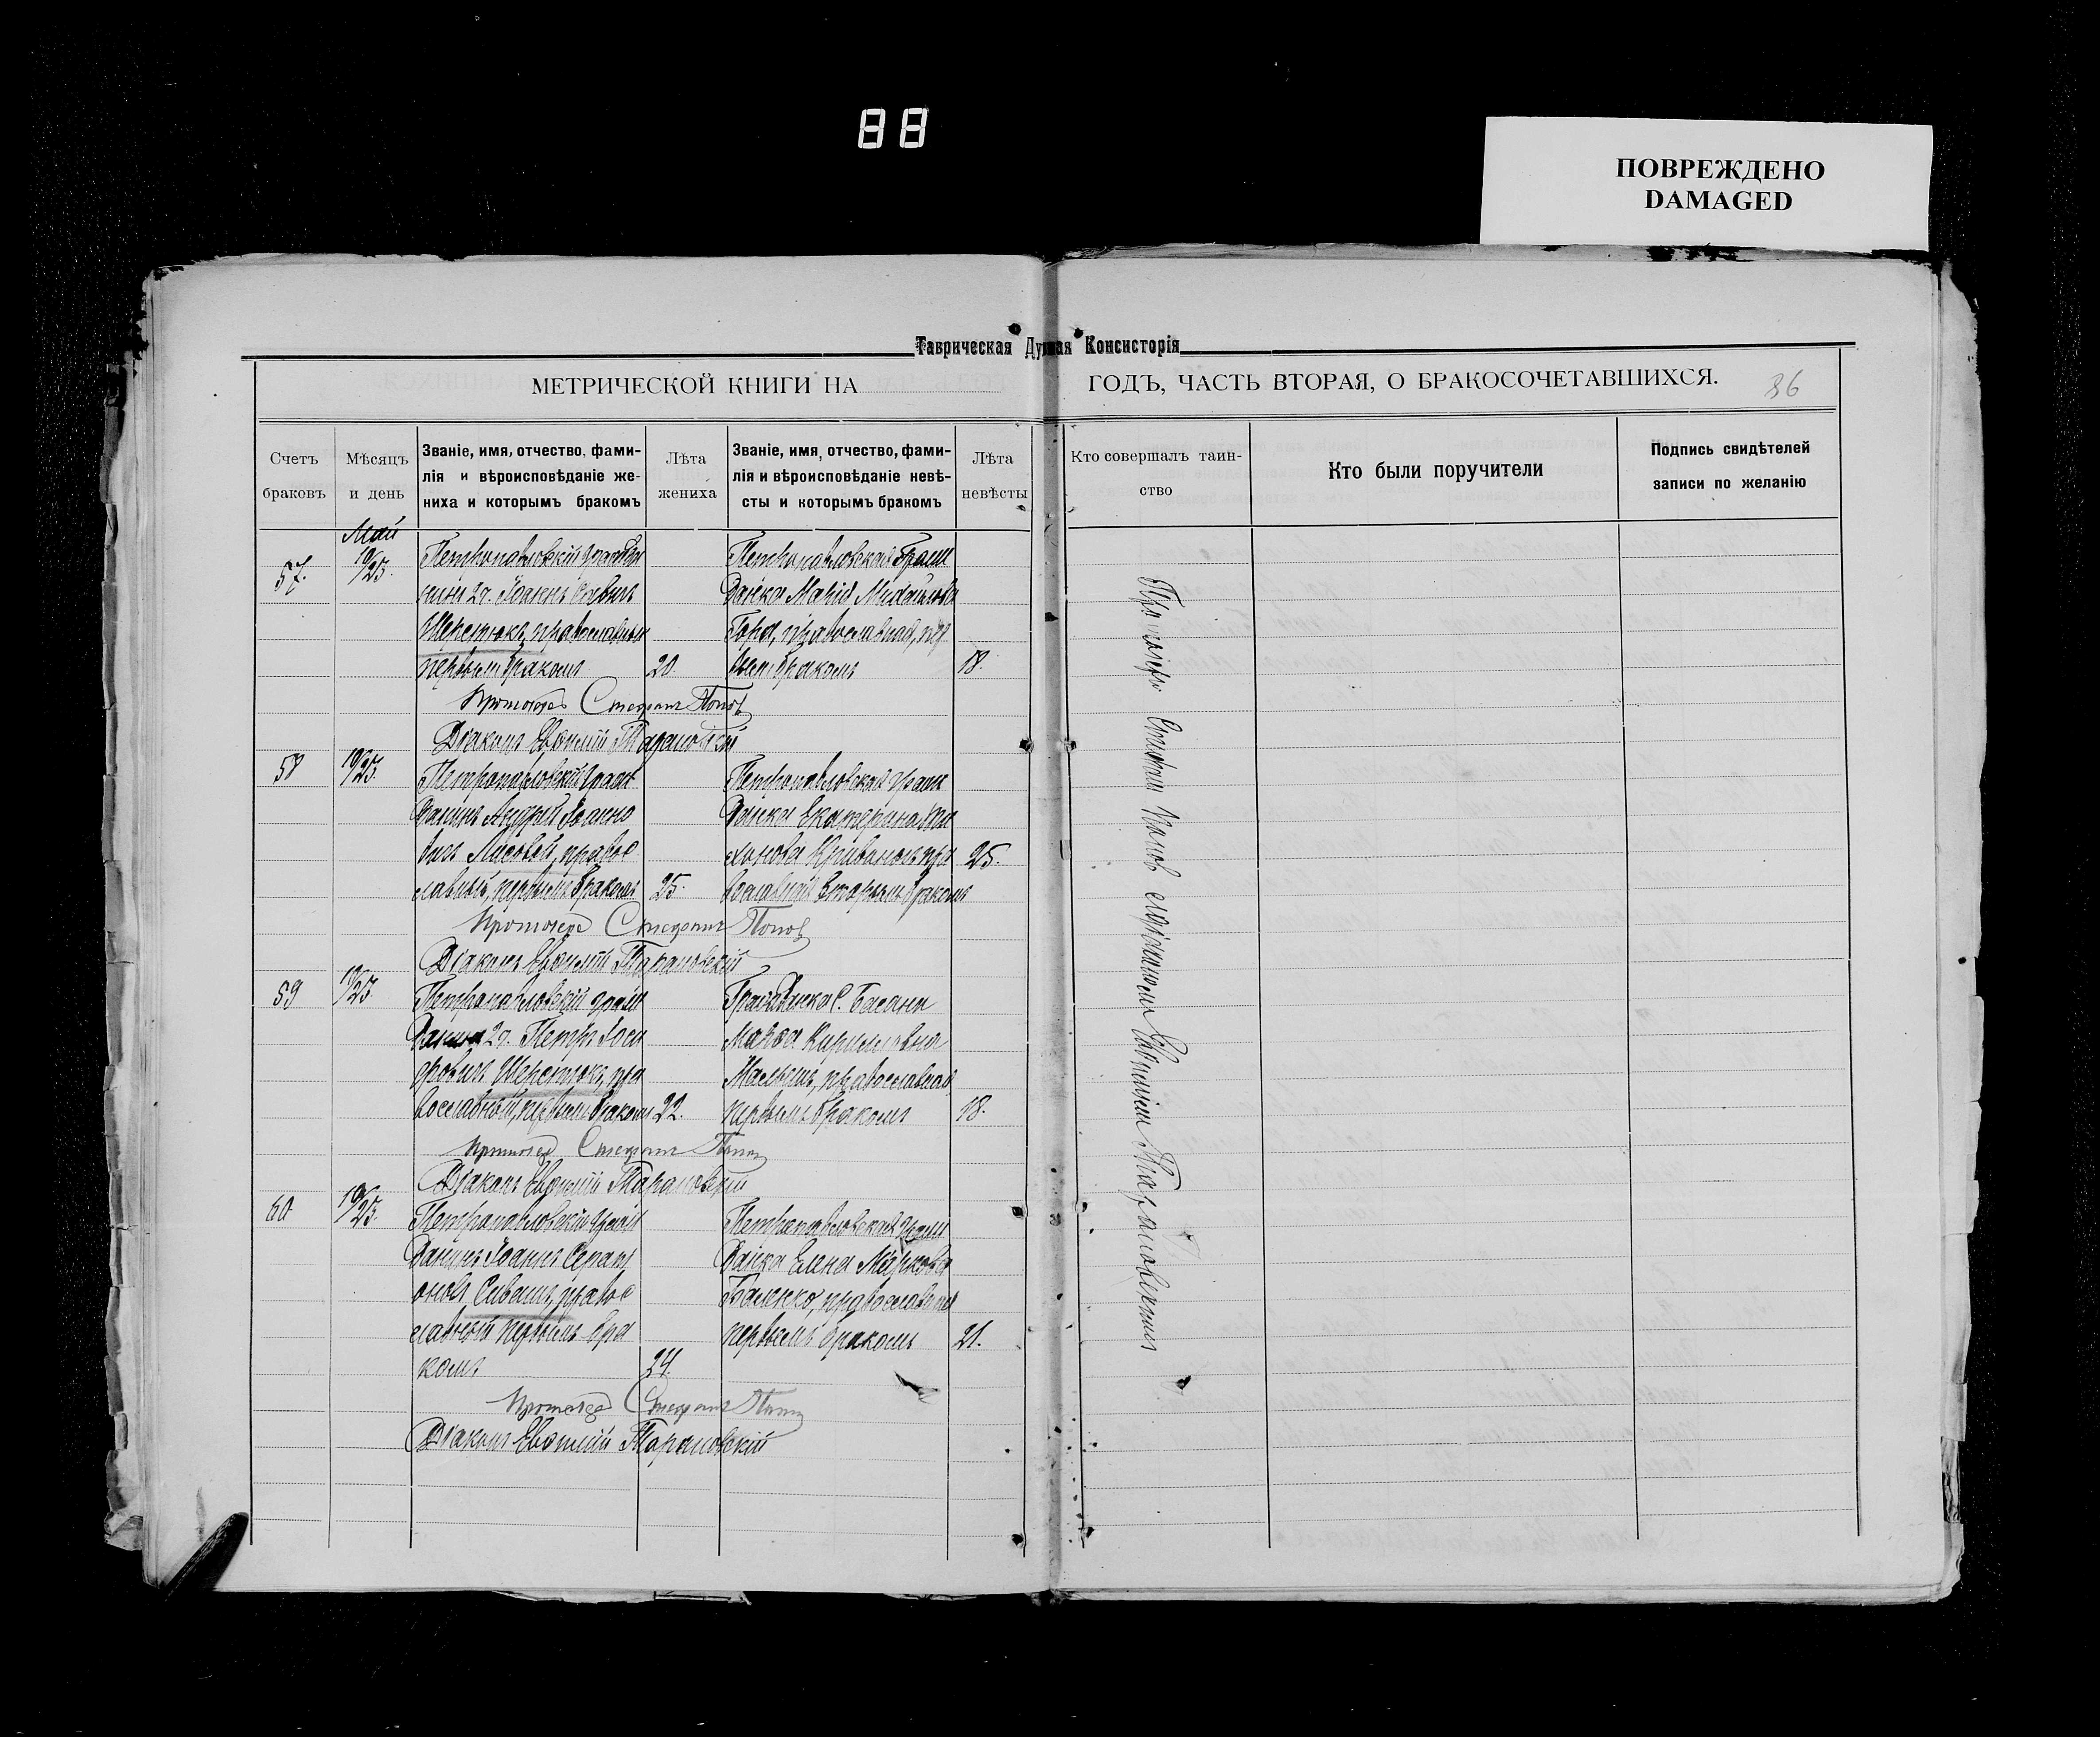 88
ПОВРЕЖДЕНО
DAMAGED
Таврическая Духная Консисторія
МЕТРИЧЕСКОЙ КНИГИ НА ГОДЪ, ЧАСТЬ ВТОРАЯ, О БРАКОСОЧЕТАВШИХСЯ.
86
Счетъ браковъ
Мѣсяцъ и день
Званіе, имя, отчество, фами-
лія и вѣроисповѣданіе же-
ниха и которымъ бракомъ
Лѣта жениха
Званіе, имя, отчество, фами-
лія и вѣроисповѣданіе невѣ-
сты и которымъ бракомъ
Лѣта невѣсты
Кто совершалъ таин-
ство
Кто были поручители
Подпись свидѣтелей
записи по желанію
Май
57. 10/25.
Петропавловскій гражда
нинъ 2 Іоаннъ Саввичъ
Шерстюкъ, православный
первымъ бракомъ
20.
Петропавловская Граж
данка Марія Михайлова
Гора, православная, пер
вымъ бракомъ
18.
Протоіерей Стефанъ Попов
Діаконъ Евѳимій Тарановскій
58 10/25.
Петропавловскій граж
данинъ Андрей Іоанно
вичъ Лисовой, правос
лавный, первымъ бракомъ
25.
Петропавловская граж
данка Екатерина
Кривонось пра
вославная вторымъ бракомъ
25.
Протоіерей Стефанъ Попов
Діаконъ Евѳимій Тарановскій
59 10/25.
Петропавловскій граж
данинъ 2 Петръ Іоси
фовичъ Шерстюкъ, пра
вославный, первымъ бракомъ
22.
Гражданка С. Басани
Марѳа Кирилловна
Малышъ, православная
первымъ бракомъ
18.
Протоіерей Стефанъ Попов
Діаконъ Евѳимій Тарановскій
60 10/25.
Петропавловскій граж
данинъ Іоаннъ Серапі
оновъ Сивашъ, правос
лавный первымъ бра
комъ
24.
Петропавловская граж
данка Елена Маркова
Баленко, православная
первымъ бракомъ
21.
Протоіерей Стефанъ Попов
Діаконъ Евѳимій Тарановскій
Протоіерей Стефанъ Попов с діакономъ Евѳиміемъ Тарановскимъ